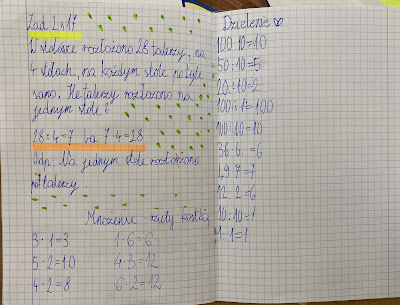 Zad 2 s 17
W stołówce rozłożono 28 talerzy, na
4 stołach, na każdym stole po tyle
samo. Ile talerzy rozłożono na
jednym stole?
28:4=7 bo 7·4=28
Odp. Na jednym stole rozłożono
talerzy
Mnożenie - rzuty kostką
3·1=3 1·6=6
5·2=10 4·3=12
4·2=8 6·2=12
Dzielenie
100:10=10
50:10=5
20:10=2
100:1=100
100:10=10
36:6=6
49:7=7
12:2=6
10:10=1
1:1=1